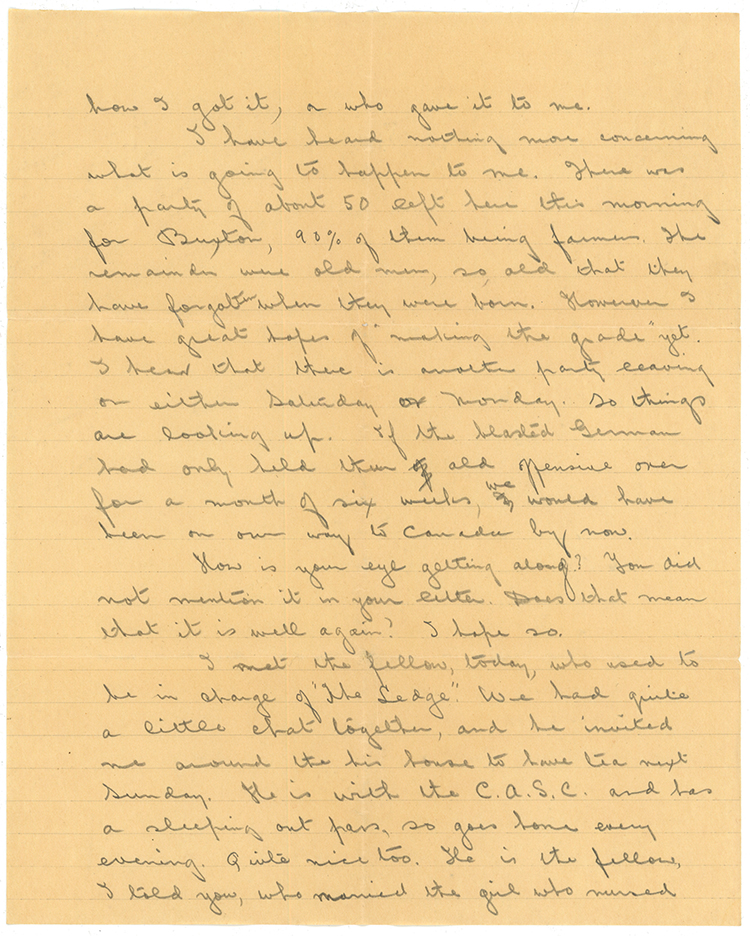 how I got it, or who gave it to me.
I have heard nothing more concerning
what is going to happen to me. There was
a party of about 50 left here this morning
for Buxton, 90% of them being farmers. The
remainder were old men, so old that they
have forgotten when they were born. However I
have great hopes of "making the grade" yet.
I hear that there is another party leaving
on either Saturday or Monday. So things
are looking up. If the blasted German
had only held their old offensive over
for a month of six weeks, we would have
been on our way to Canada by now.
How is your eye getting along? You did
not mention it in your letter. Does that mean
that it is well again? I hope so.
I met the fellow, today, who used to
be in charge of "The Ledge". We had quite
a little chat together, and he invited
me around the his house to have tea next
Sunday. He is with the C.A.S.C. and has
a sleeping out pass, so goes home every
evening. Quite nice too. He is the fellow,
I told you, who married the girl who nursed